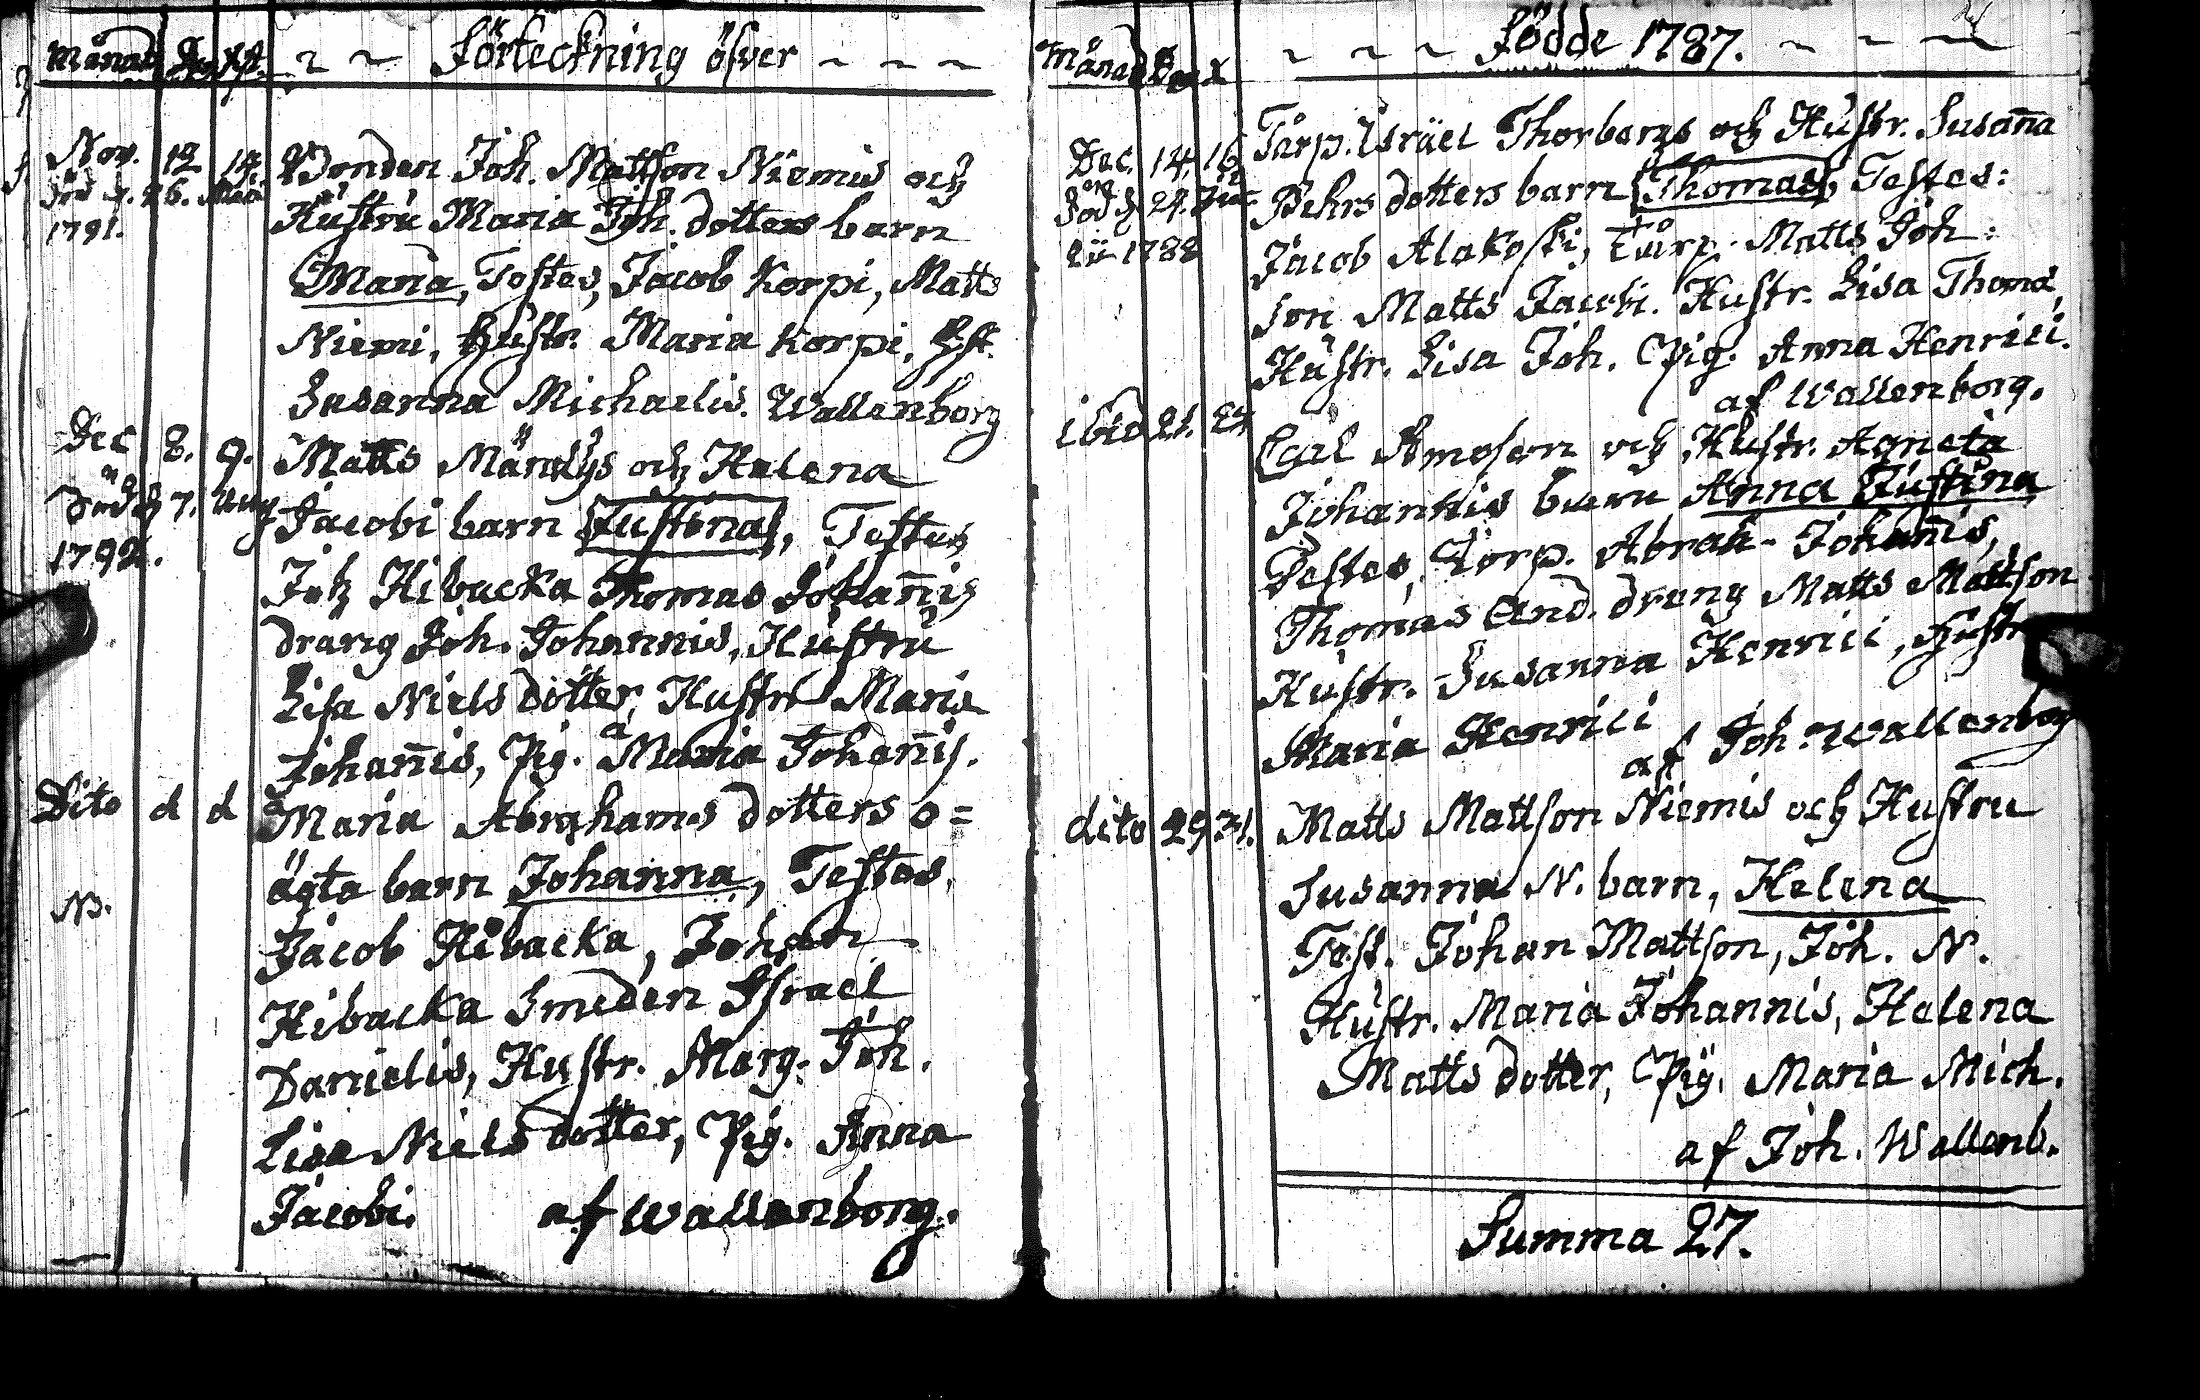 Månad Dag Xst. Förteckning öfver
Nov. 12 14. Bonden Joh. Mattson Niemis och
död d. 26. 1791. Hustru Maria Joh. dotters barn
Maria, Testes, Jacob Korpi, Matts
Niemi, Hustr. Maria Korpi, Hst.
Susanna Michaelis. Wallenborg
Dec 8. 9. Matts Mändys och Helena
död d 7. Aug 1792. Jacobi barn Justina, Testes
Joh Hibacka Thomas Johan̄is
dräng Joh. Johannis, Hustru
Lisa Niels dotter, Hustr Maria
Johan̄is, Pig. Maria Johan̄is.
Dito d d Maria Abrahams dotters o=
ägta barn Johanna, Testes.
NB. Jacob Hibacka, Johan
Hibacka Smeden Israel
Danielis, Hustr. Marg. Joh.
Lisa Niels dotter, Pig. Anna
Jacobi. af Wallenborg.
Månad Dag X Födde 1787.
Dec. 14, 16 Tårp. Israel Thorbergs och Hustr. Susan̄a
död d 29. 1788 Pehrs dotters barn Thomas, Testes:
Jacob Alakoski, Torp. Matts Joh:
son Matts Jacobi. Hustr. Lisa Thoma,
Hustr. Lisa Joh. Pig. Anna Henrici.
af Wallenborg.
ibid 21. 24 Carl Amoson och Hustr. Agneta
Johannis barn Anna Justina
Testes, Torp. Abrah. Johan̄is,
Thomas And. dräng Matts Mattson
Hustr. Susanna Henrici, Hustr
Maria Henrici
af Joh. Wallenborg
dito 29 31. Matts Mattson Niemis och Hustru
Susanna N. barn, Helena
Test. Johan Mattson, Joh. N.
Hustr. Maria Johannis, Helena
Matts dotter, Pig. Maria Mich.
af Joh. Wallenb.
Summa 27.